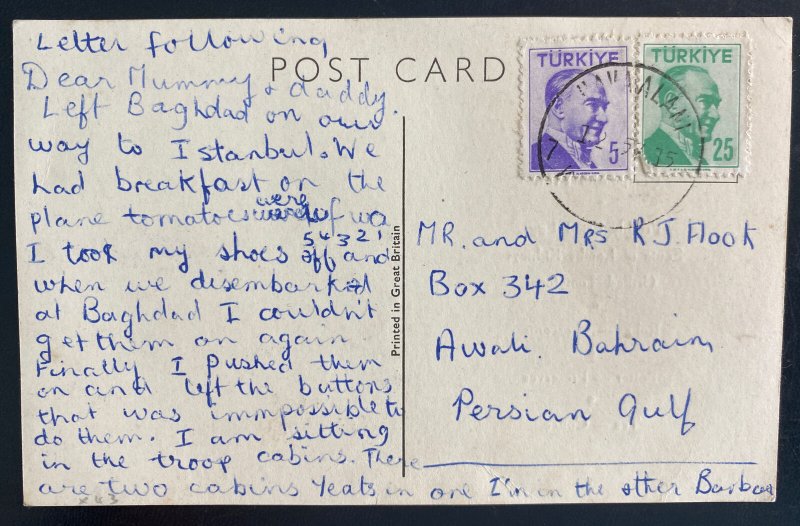 Letter following
Dear Mummy & daddy.
Left Baghdad on our
way to Istanbul. We
had breakfast on the
plane tomatoes were
I took my shoes off and
5 4 3 2 1
when we disembarked
at Baghdad I couldn't
get them on again
Finally I pushed them
on and left the buttons
that was immpossible to
do them. I am sitting
in the troop cabins. There
are two cabins Yeats in one I'm in the other Barbar
POST CARD
Printed in Great Britain
TÜRKİYE
5
TÜRKİYE
25
MR. and MRS R.J. Hook
Box 342
Awali. Bahrain
Persian Gulf
x43